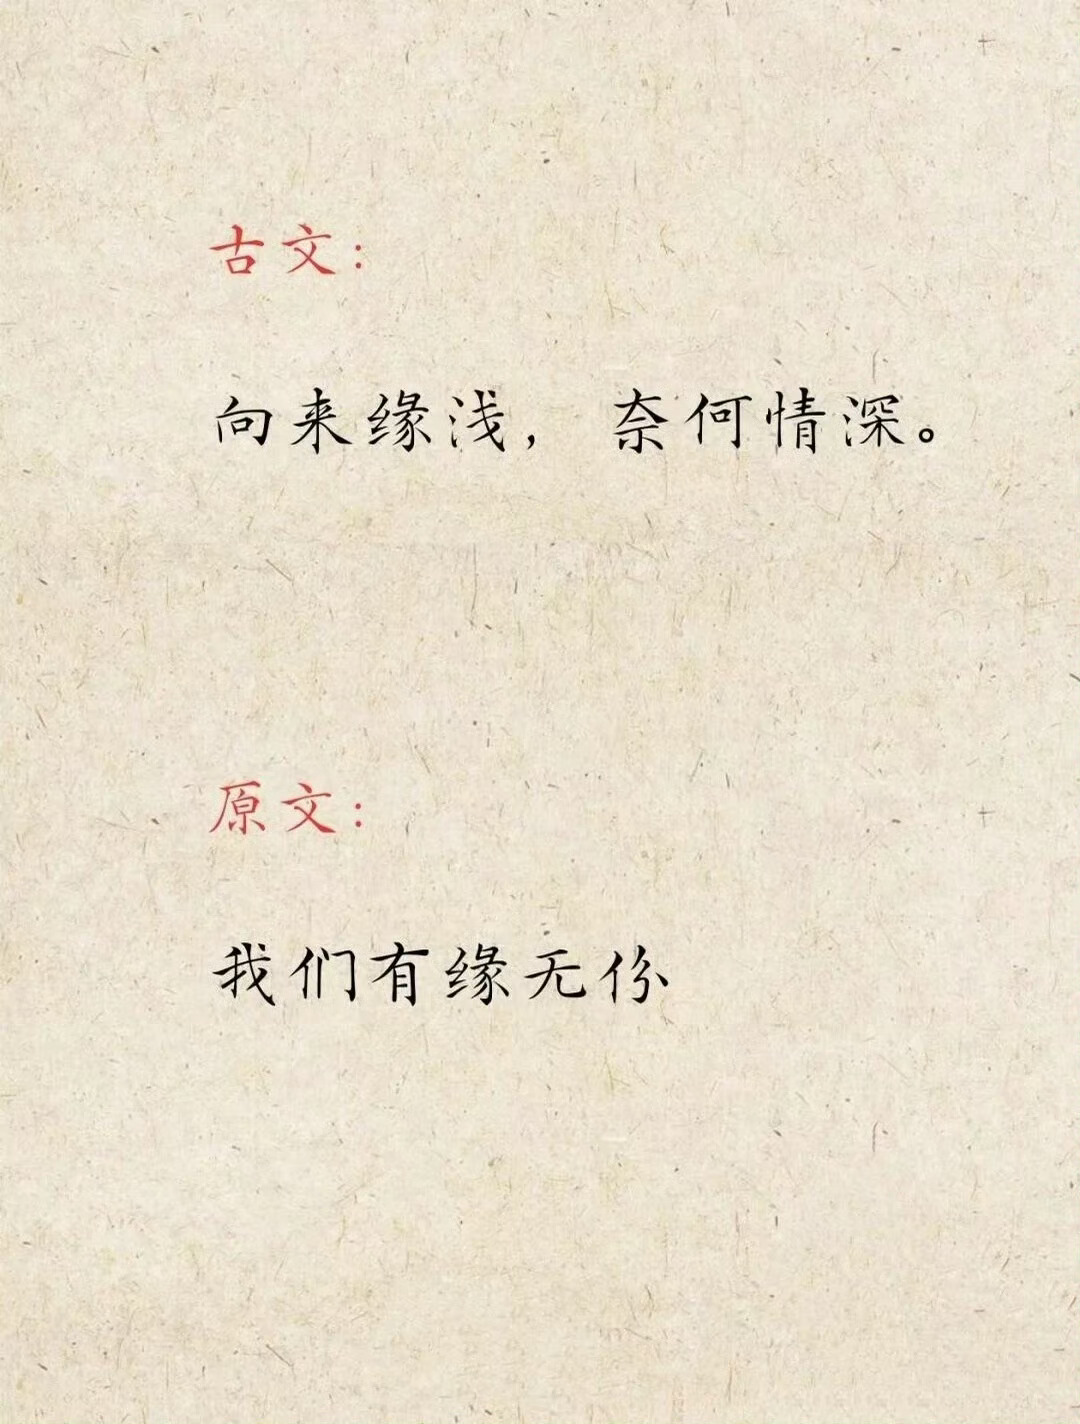 古文：
向来缘浅，奈何情深。
原文：
我们有缘无份